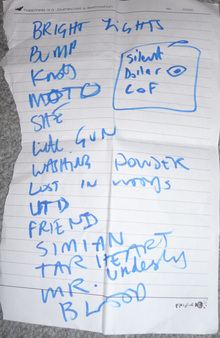 BRIGHT LIGHTS
BUMP
MOTO
SHE
Little GUN
WASHING POWDER
LOST IN WOODS
UTD
FRIEND
SIMIAN
TAR HEART
MR. Underly
BLOOD
Silent
Dollar
CoF